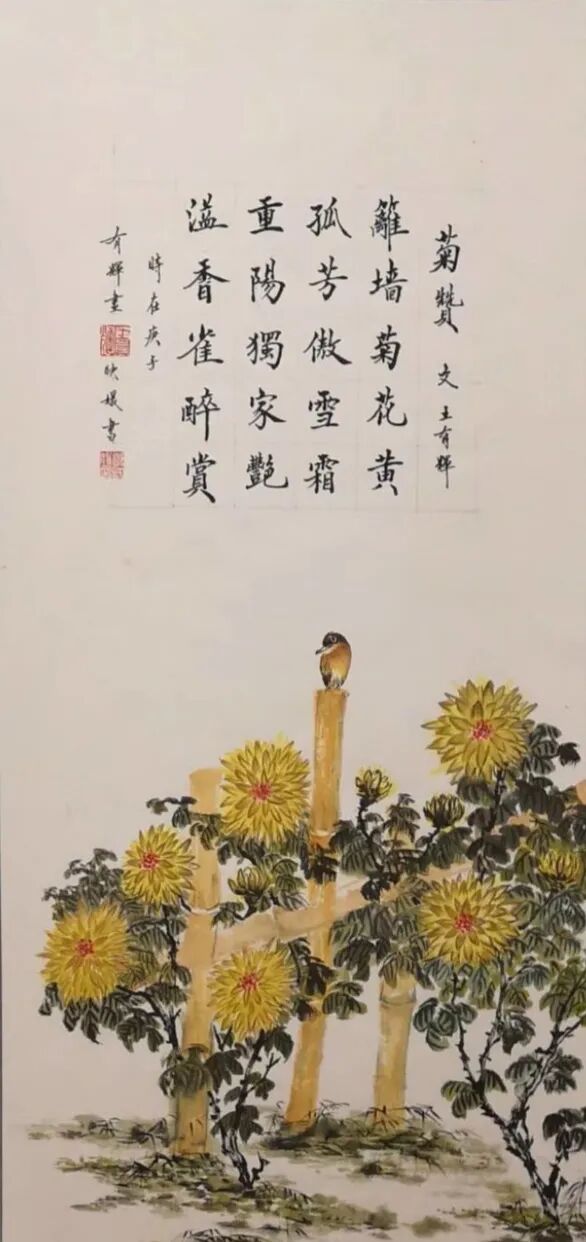 菊贊 文 王有輝
籬墙菊花黄
孤芳傲雪霜
重陽獨家艷
溢香雀醉賞
時在庚子
有輝畫 映嬟書